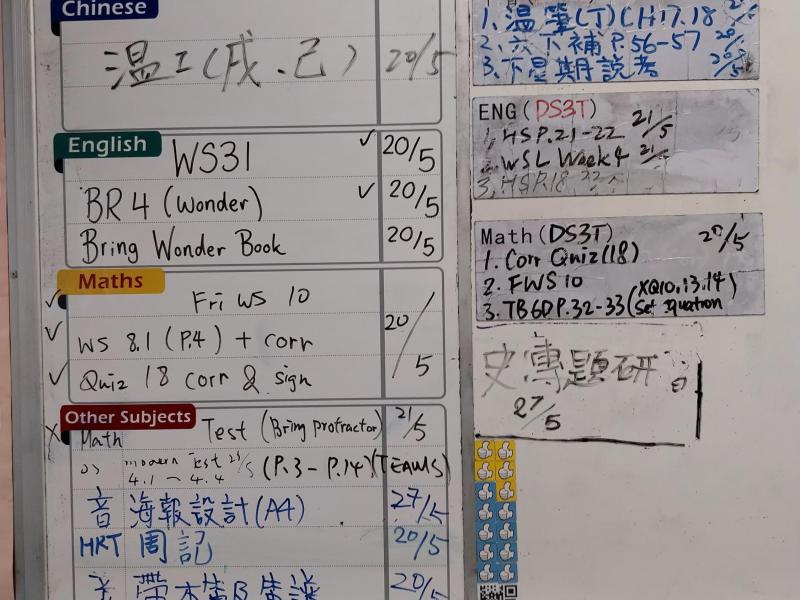 Chinese
溫工(戌、己) 20/5
English
WS31 ✓ 20/5
BR 4 (Wonder) ✓ 20/5
Bring Wonder Book 20/5
Maths
Fri WS 10
WS 8.1 (P.4) + corr 20/5
Quiz 18 corr & sign
Other Subjects
Math Test (Bring protractor) 21/5
Test 4.1 ~ 4.4 (P.3 - P.14) (TEAMS)
音 海報設計(A4) 27/5
HRT 周記 20/5
20/5
1. 溫筆(丁)(H17.18
2. 六下補 P.56-57 20/5
3. 下星期說考 20/5
ENG (DS3T)
1. HS P.21-22 21/5
2. WSL Week 4 21/5
3. HSP.18
Math (DS3T) 27/5
1. Corr Quiz (18)
2. FWS 10
3. TB6D P.32-33 (XQ10,13,14) (Set Equation
史專題研
27/5